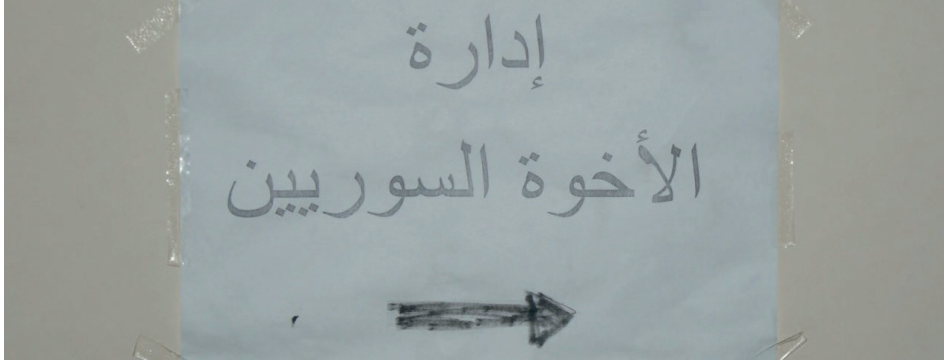 إدارة
الأخوة السوريين